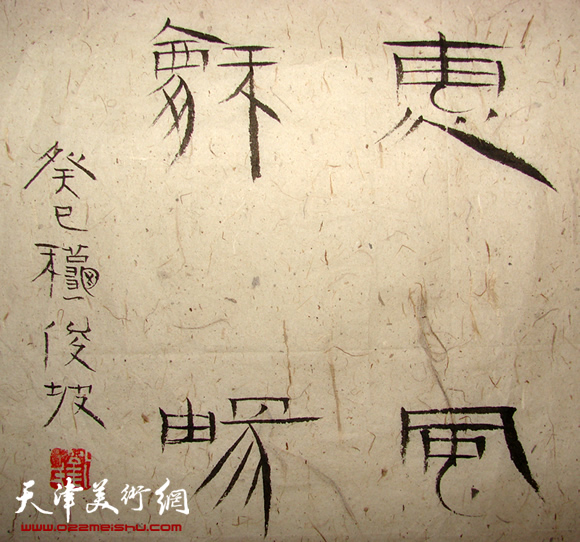 惠風
龢暢
癸巳龝俊坡
天津美術網
www.022meishu.com